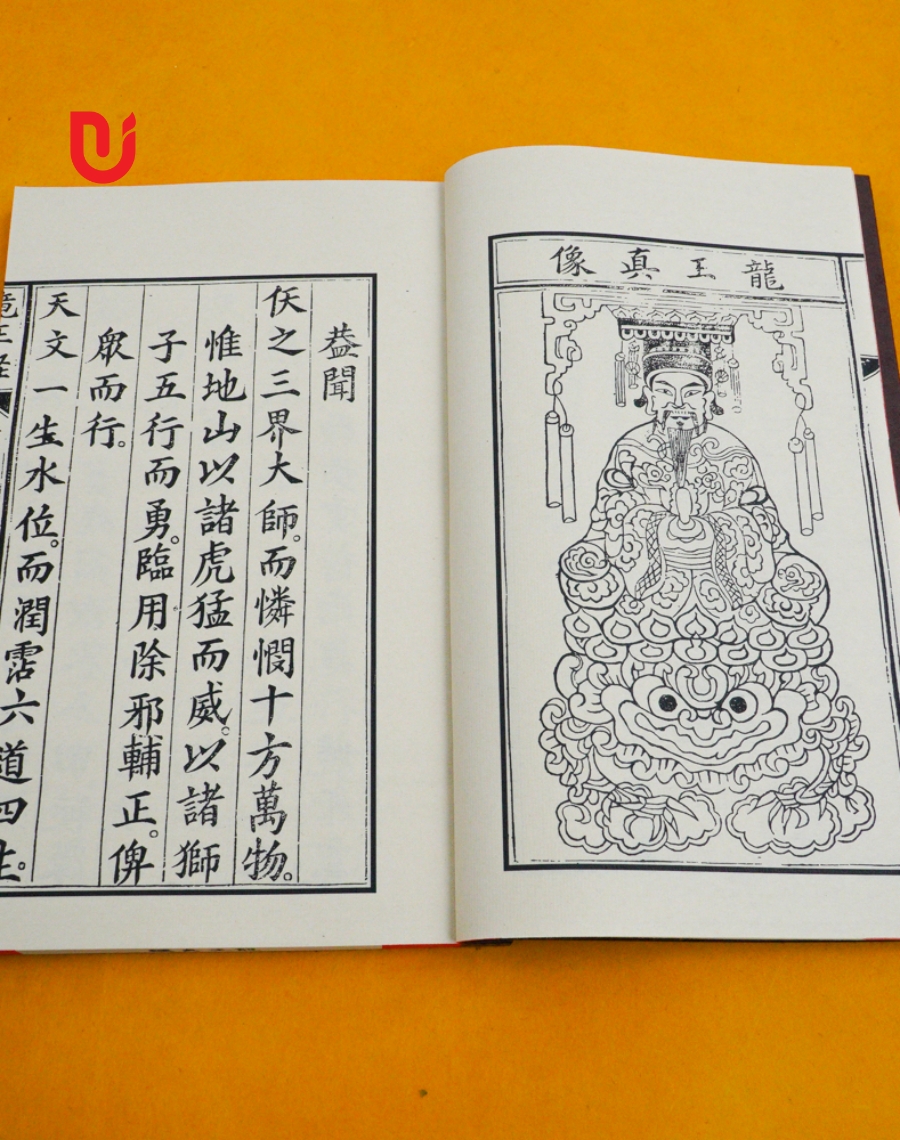 龍王真像
葢聞
仸之三界大師。而憐憫十方萬物。
惟地山以諸虎猛而威。以諸獅
子五行而勇。臨用除邪輔正。俾
眾而行。
天文一生水位。而潤霑六道四生。